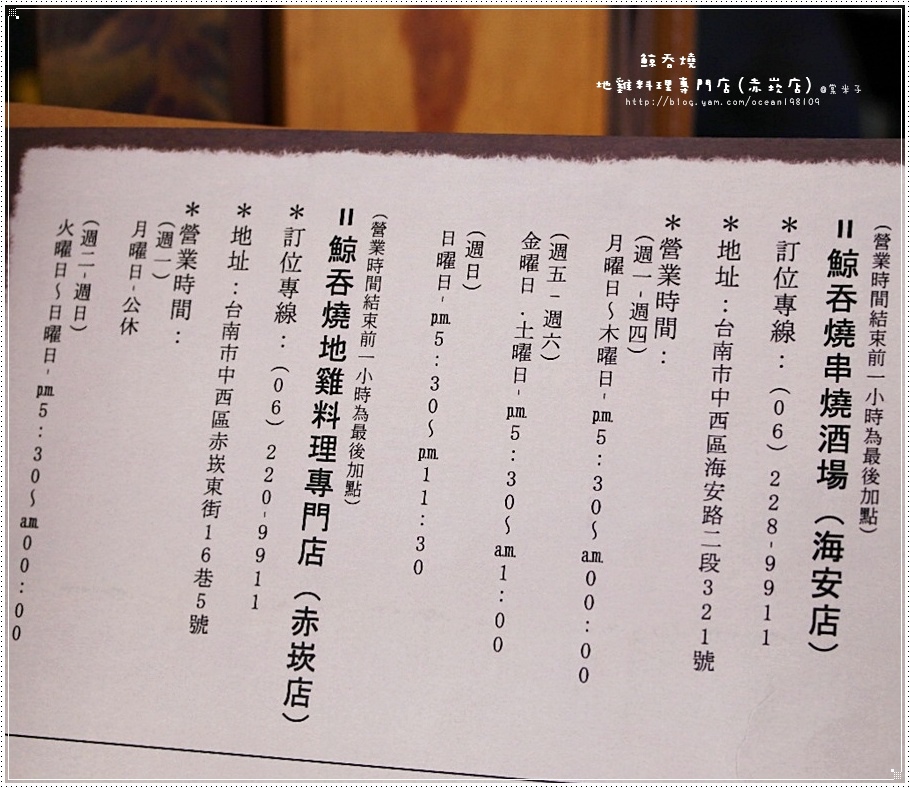 鯨吞燒
地雞料理專門店(赤崁店) @黨米子
http://blog.yam.com/ocean198109
(營業時間結束前一小時為最後加點)
=鯨吞燒串燒酒場(海安店)
＊訂位專線：(06)228-9911
＊地址：台南市中西區海安路二段321號
＊營業時間：
(週一-週四)
月曜日～木曜日-p.m.5:30～a.m.00:00
(週五-週六)
金曜日.土曜日-p.m.5:30～a.m.1:00
(週日)
日曜日-p.m.5:30～p.m.11:30
(營業時間結束前一小時為最後加點)
=鯨吞燒地雞料理專門店(赤崁店)
＊訂位專線：(06)220-9911
＊地址：台南市中西區赤崁東街16巷5號
＊營業時間：
(週一)
月曜日-公休
(週二-週日)
火曜日～日曜日-p.m.5:30～a.m.00:00